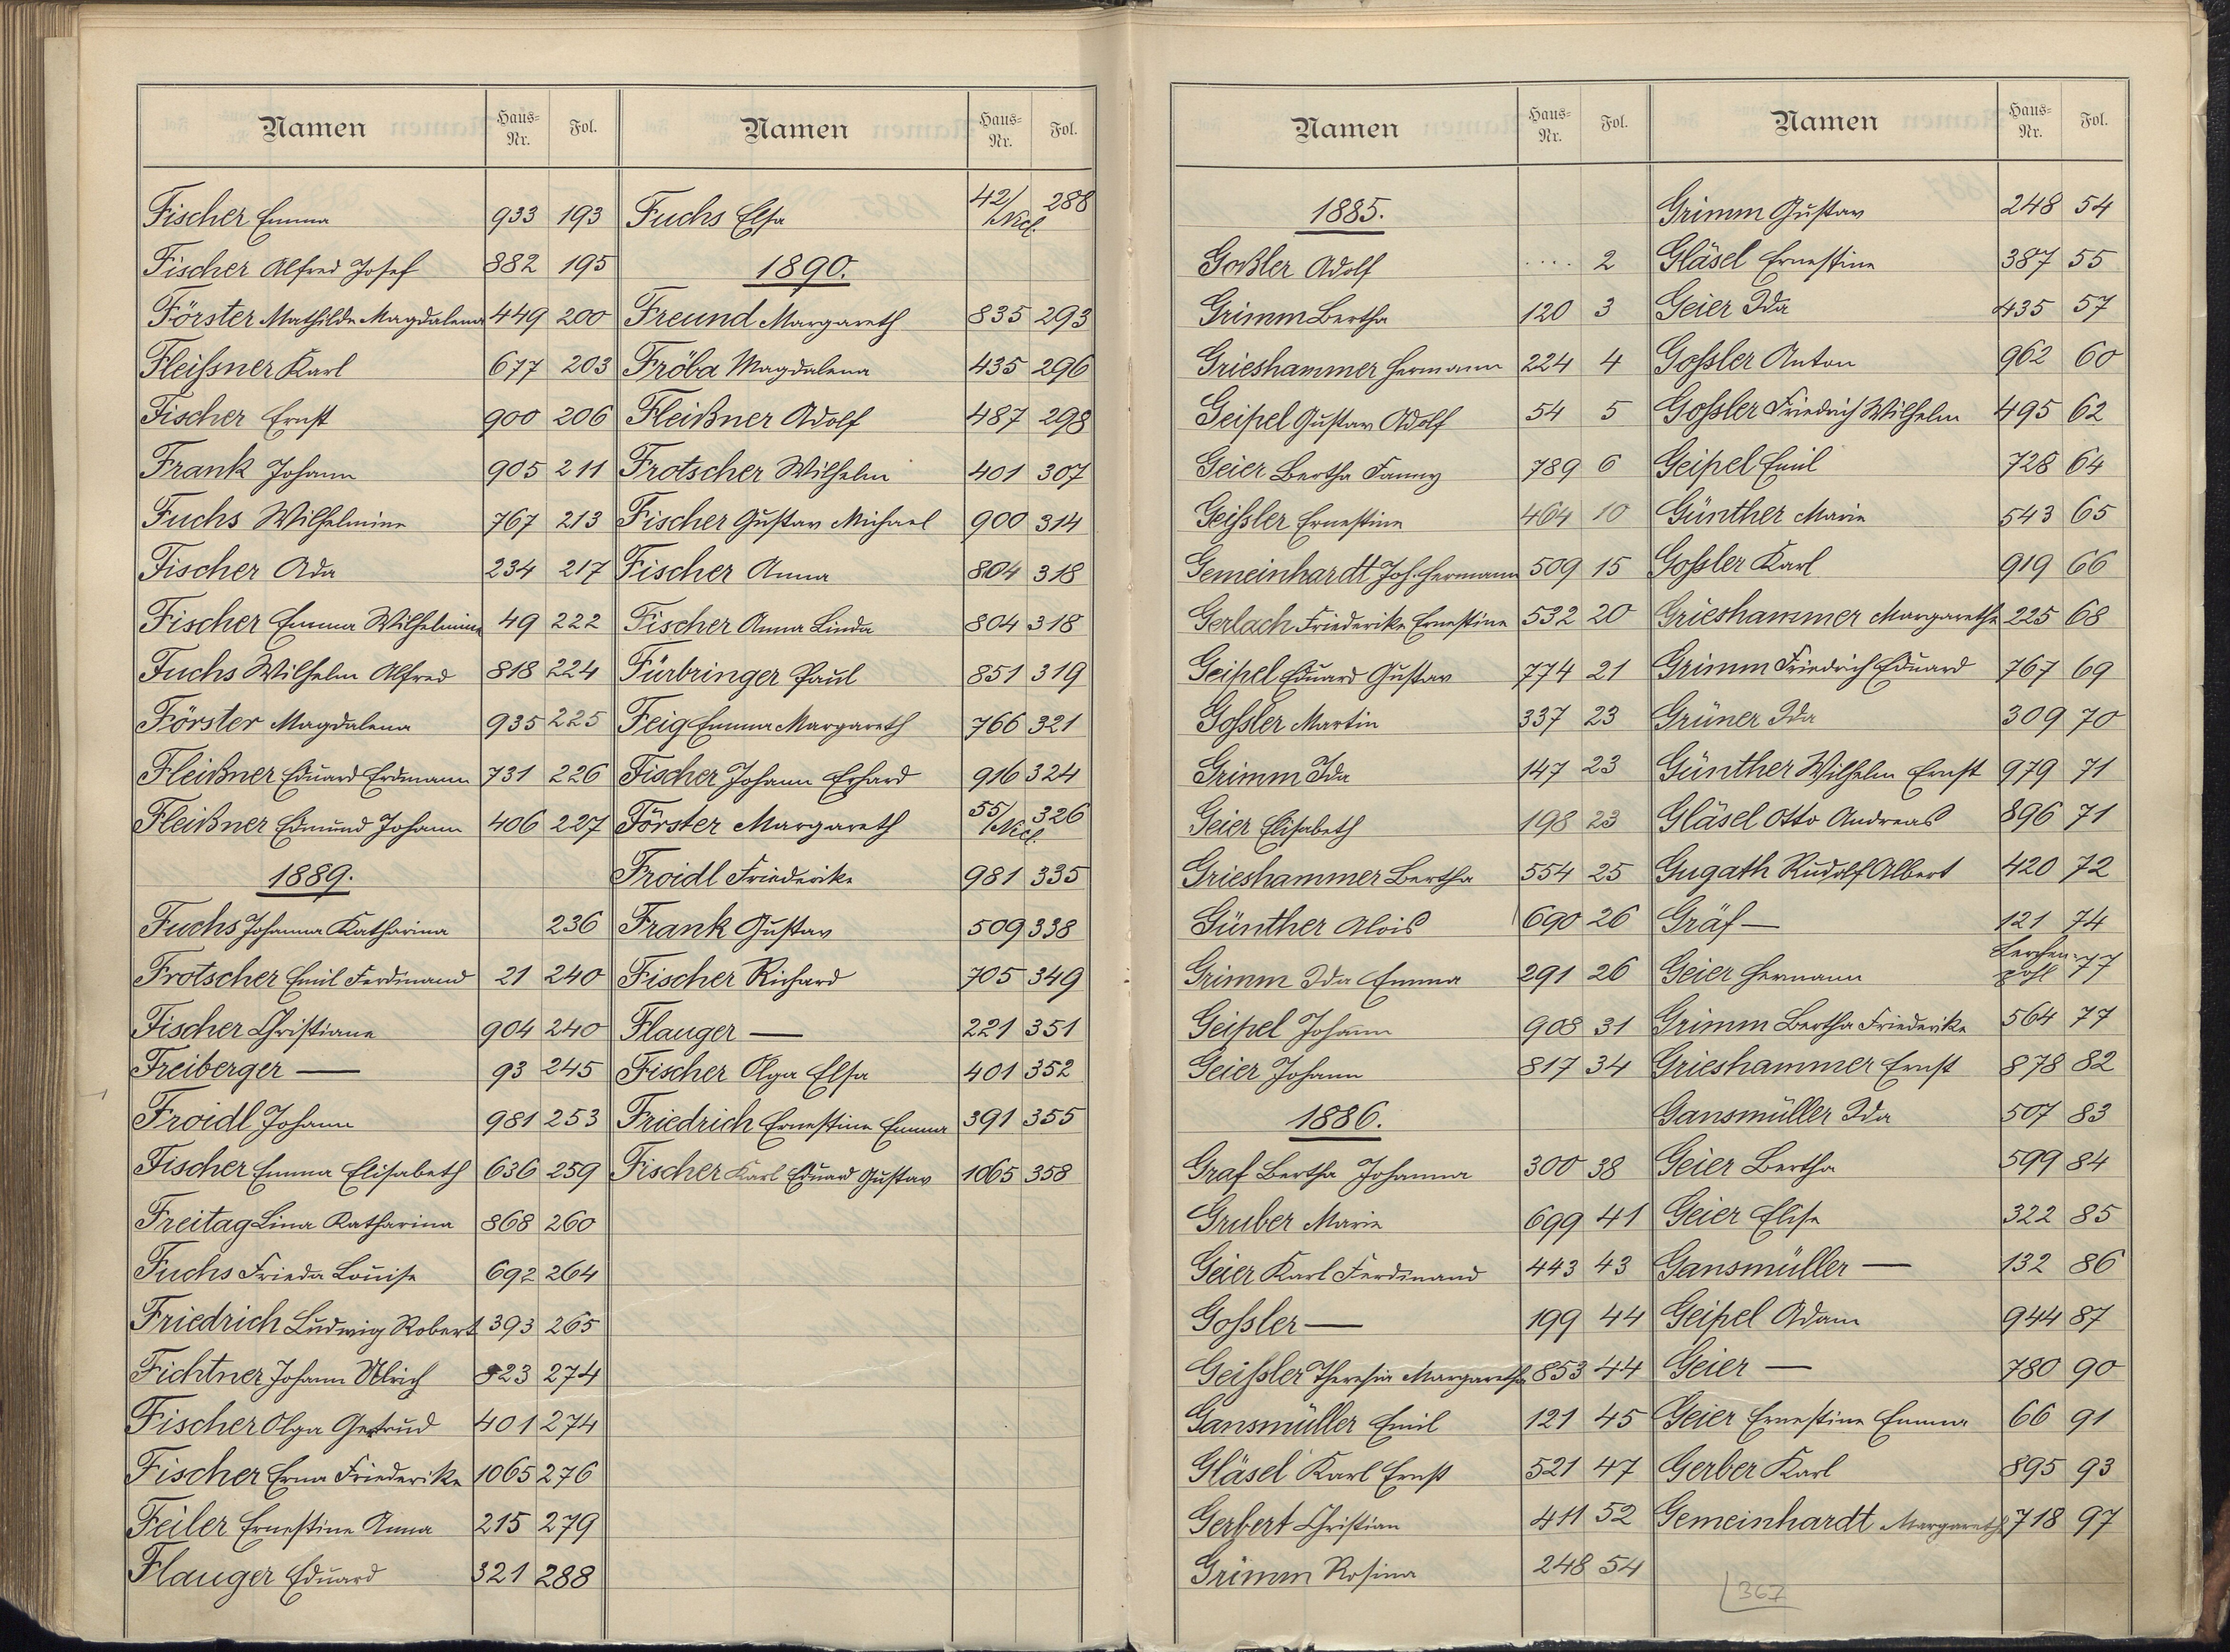 Namen Haus-Nr. Fol.
Fischer Emma 933 193
Fischer Alfred Josef 882 195
Förster Mathilde Magdalena 449 200
Fleißner Karl 677 203
Fischer Ernst 900 206
Frank Johann 905 211
Fuchs Wilhelmine 767 213
Fischer Ada 234 217
Fischer Emma Wilhelmine 49 222
Fuchs Wilhelm Alfred 818 224
Förster Magdalena 935 225
Fleißner Eduard Erdmann 731 226
Fleißner Edmund Johann 406 227
1889.
Fuchs Johanna Katharina 236
Frotscher Emil Ferdinand 21 240
Fischer Christiane 904 240
Freiberger — 93 245
Froidl Johann 981 253
Fischer Emma Elisabeth 636 259
Freitag Lina Katharina 868 260
Fuchs Frieda Louise 692 264
Friedrich Ludwig Robert 393 265
Fichtner Johann Ulrich 823 274
Fischer Olga Gertrud 401 274
Fischer Erna Friederike 1065 276
Feiler Ernestine Anna 215 279
Flauger Eduard 321 288
Namen Haus-Nr. Fol.
Fuchs Elsa 42/Nicl. 288
1890.
Freund Margareth 835 293
Fröba Magdalena 435 296
Fleißner Adolf 487 298
Frotscher Wilhelm 401 307
Fischer Gustav Michael 900 314
Fischer Anna 804 318
Fischer Anna Linda 804 318
Fürbringer Paul 851 319
Feig Emma Margareth 766 321
Fischer Johann Erhard 916 324
Förster Margareth 55/Nicl. 326
Froidl Friederike 981 335
Frank Gustav 509 338
Fischer Richard 705 349
Flauger — 221 351
Fischer Olga Elsa 401 352
Friedrich Ernestine Emma 391 355
Fischer Karl Eduard Gustav 1065 358
Namen Haus-Nr. Fol.
1885.
Goßler Adolf .... 2
Grimm Bertha 120 3
Grieshammer Hermann 224 4
Geipel Gustav Adolf 54 5
Geier Bertha Fanny 789 6
Geißler Ernestine 464 10
Gemeinhardt Joh. Hermann 509 15
Gerlach Friederike Ernestine 532 20
Geipel Eduard Gustav 774 21
Goßler Martin 337 23
Grimm Ida 147 23
Geier Elisabeth 198 23
Grieshammer Bertha 554 25
Günther Alois 690 26
Grimm Ida Emma 291 26
Geipel Johann 908 31
Geier Johann 817 34
1886.
Graf Bertha Johanna 300 38
Gruber Marie 699 41
Geier Karl Ferdinand 443 43
Goßler — 199 44
Geißler Theresia Margaretha 853 44
Gansmüller Emil 121 45
Gläsel Karl Ernst 521 47
Gerbert Christian 411 52
Grimm Rosina 248 54
Namen Haus-Nr. Fol.
Grimm Gustav 248 54
Gläsel Ernestine 387 55
Geier Ida 435 57
Goßler Anton 962 60
Goßler Friedrich Wilhelm 495 62
Geipel Emil 728 64
Günther Marie 543 65
Goßler Karl 919 66
Grieshammer Margarethe 225 68
Grimm Friedrich Eduard 767 69
Grüner Ida 309 70
Günther Wilhelm Ernst 979 71
Gläsel Otto Andreas 896 71
Gugath Rudolf Albert 420 72
Gräf — 121 74
Geier Hermann Lerchenpohl 77
Grimm Bertha Friederike 564 77
Grieshammer Ernst 878 82
Gansmüller Ida 507 83
Geier Bertha 599 84
Geier Elise 322 85
Gansmüller — 132 86
Geipel Adam 944 87
Geier — 780 90
Geier Ernestine Emma 66 91
Gerber Karl 895 93
Gemeinhardt Margareth 718 97
367